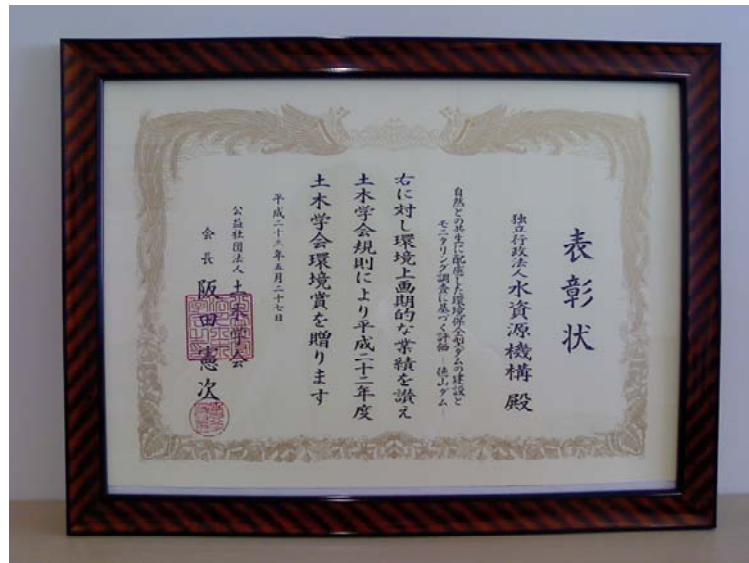 表彰状
独立行政法人水資源機構殿
自然との共生に配慮した環境保全型ダムの建設と
モニタリング調査に基づく評価―徳山ダム―
右に対し環境上画期的な業績を讃え
土木学会規則により平成二十二年度
土木学会環境賞を贈ります
平成二十三年五月二十七日
公益社団法人土木学会
会長阪田憲次